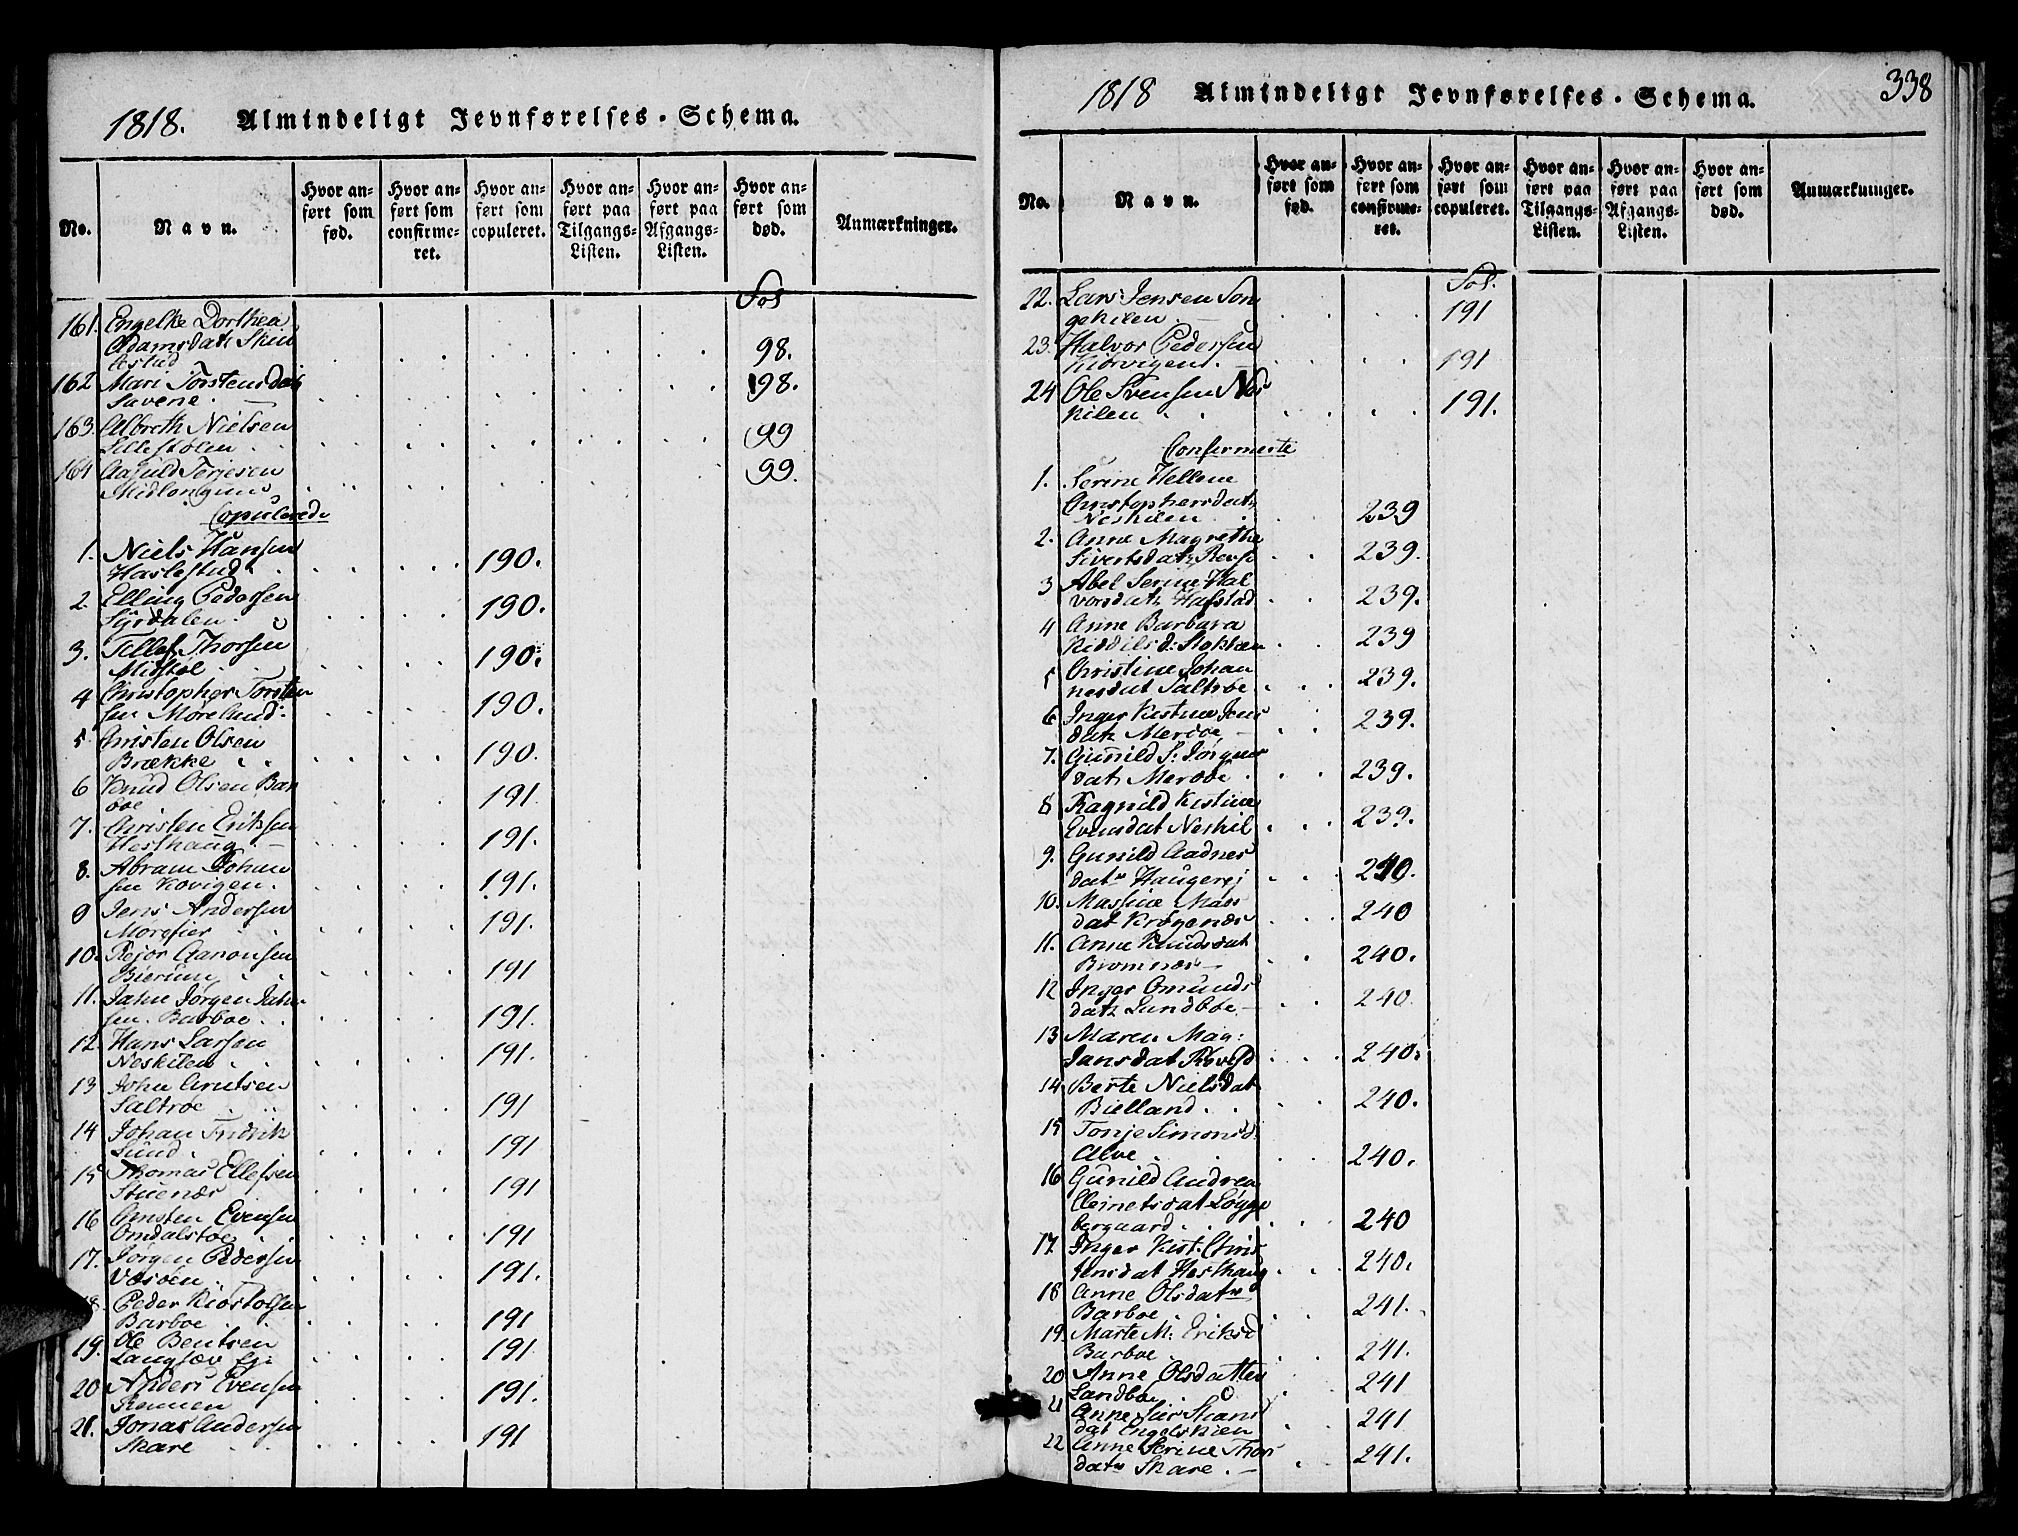 1818. Almindeligt Jevnførelses-Schema.
No. Navn. Hvor anført som fød. Hvor anført som confirmeret. Hvor anført som copuleret. Hvor anført paa Tilgangs-Listen. Hvor anført paa Afgangs-Listen. Hvor anført som død. Anmærkninger.
Fol
161. Engelke Dorthea
Adamsdatr
98.
162 Mari Torstensdatr
Savene. 98.
163. Albreth Nielsen
Lillestølen 99
164 Terjesen
99.
Copulerede
1. Niels Hansen
Haslestud 190.
2. Elling Pedersen
Syrdalen. 190.
3. Tellef Thorsen
Midstøl 190.
4 Christopher Torsten
sen Møreland. 190.
5 Christen Olsen
Brække 190.
6 Knud Olsen Bar
boe 191
7. Christen Eriksen
Hesthaug 191.
8. Abram Johan
sen Kovigen. 191.
9 Jens Andersen
Morefier 191.
10. Rejor Aanonsen
Bierung 191
11. Jahn Jørgen Jahn
sen. Barboe 191.
12. Hans Larsen
Neskilen 191.
13 John Knutsen
Saltroe 191
14 Johan Fridrik
Lund. 191
15 Thomas Ellefsen
Stuenæs 191
16 Christen Evensen
Omdalstøe 191
17. Jørgen Pedersen
Værøen 191.
18. Peder Kiøstolsen
Barboe 191
19. Ole Bentsen
Langsæv Ej: 191.
20 Anders Evensen
Rømen 191.
21. Jonas Andersen
Skare 191
1818 Almindeligt Jevnførelses-Schema. 338
No. Navn. Hvor anført som fød. Hvor anført som confirmeret. Hvor anført som copuleret. Hvor anført paa Tilgangs-Listen. Hvor anført paa Afgangs-Listen. Hvor anført som død. Anmærkninger.
Fol.
22. Lars Jensen Son
gekilen 191
23. Halvor Pedersen
Kiørvigen 191
24 Ole Svensen Nes
kilen 191.
Confirmerte
1. Serine Hellene
Christophersdatr
Neskilen 239
2. Anne Magrethe
Sivertsdatr 239.
3 Abel Serine Hal
vorsdatr Hafstad 239.
4 Anne Barbara
Kiddilsd: Stokken 239
5 Christine Johan
nesdat Saltroe 239.
6 Inger Kistine Jens
datr Merdøe 239.
7. Gunild S: Jørgens
datr Merdøe 239.
8 Ragnild Kistine
Evensdat Neskil 239.
9. Gunild Aadnes
datr Haugerej 240.
10. Massine Mads
dat Krøgenæs 240
11. Anne Knudsdat
Bromnæs 240.
12 Inger Omunds
datr Sandboe 240.
13 Maren Mag:
Jansdat 240.
14 Berte Nielsdat
Bielland. 240.
15 Tonje Simonsd:
Alve 240.
16 Gunild Andrea
Clemetsdat Løgge
bergaard. 240
17. Inger Kist: Chris
tensdat Hesthaug 240.
18 Anne Olsdatr
Barboe 241.
19. Marte M: Eriksd
Barboe 241.
20 Anne Olsdatter
Sandboe 241
21 Anne
dat Engelskien 241
22 Anne Serine Thors
datr Skare 241.